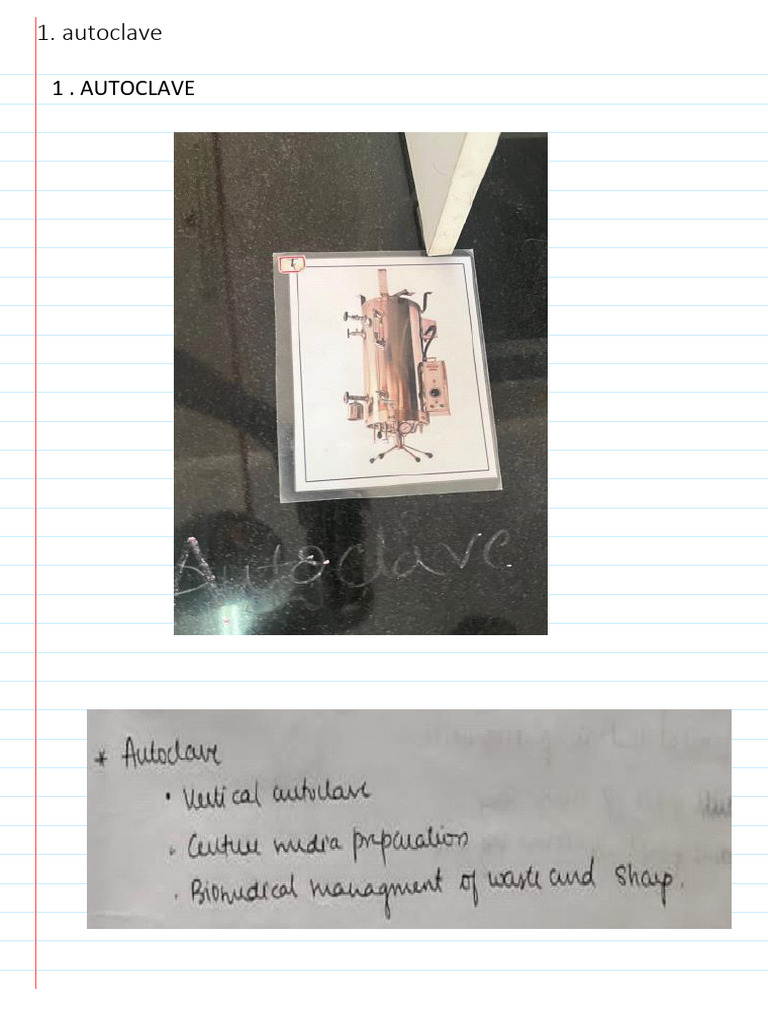 1. autoclave
1 . AUTOCLAVE
1
Autoclave
* Autoclave
• Vertical autoclave
• Culture media preparation
• Biomedical managment of waste and sharp.